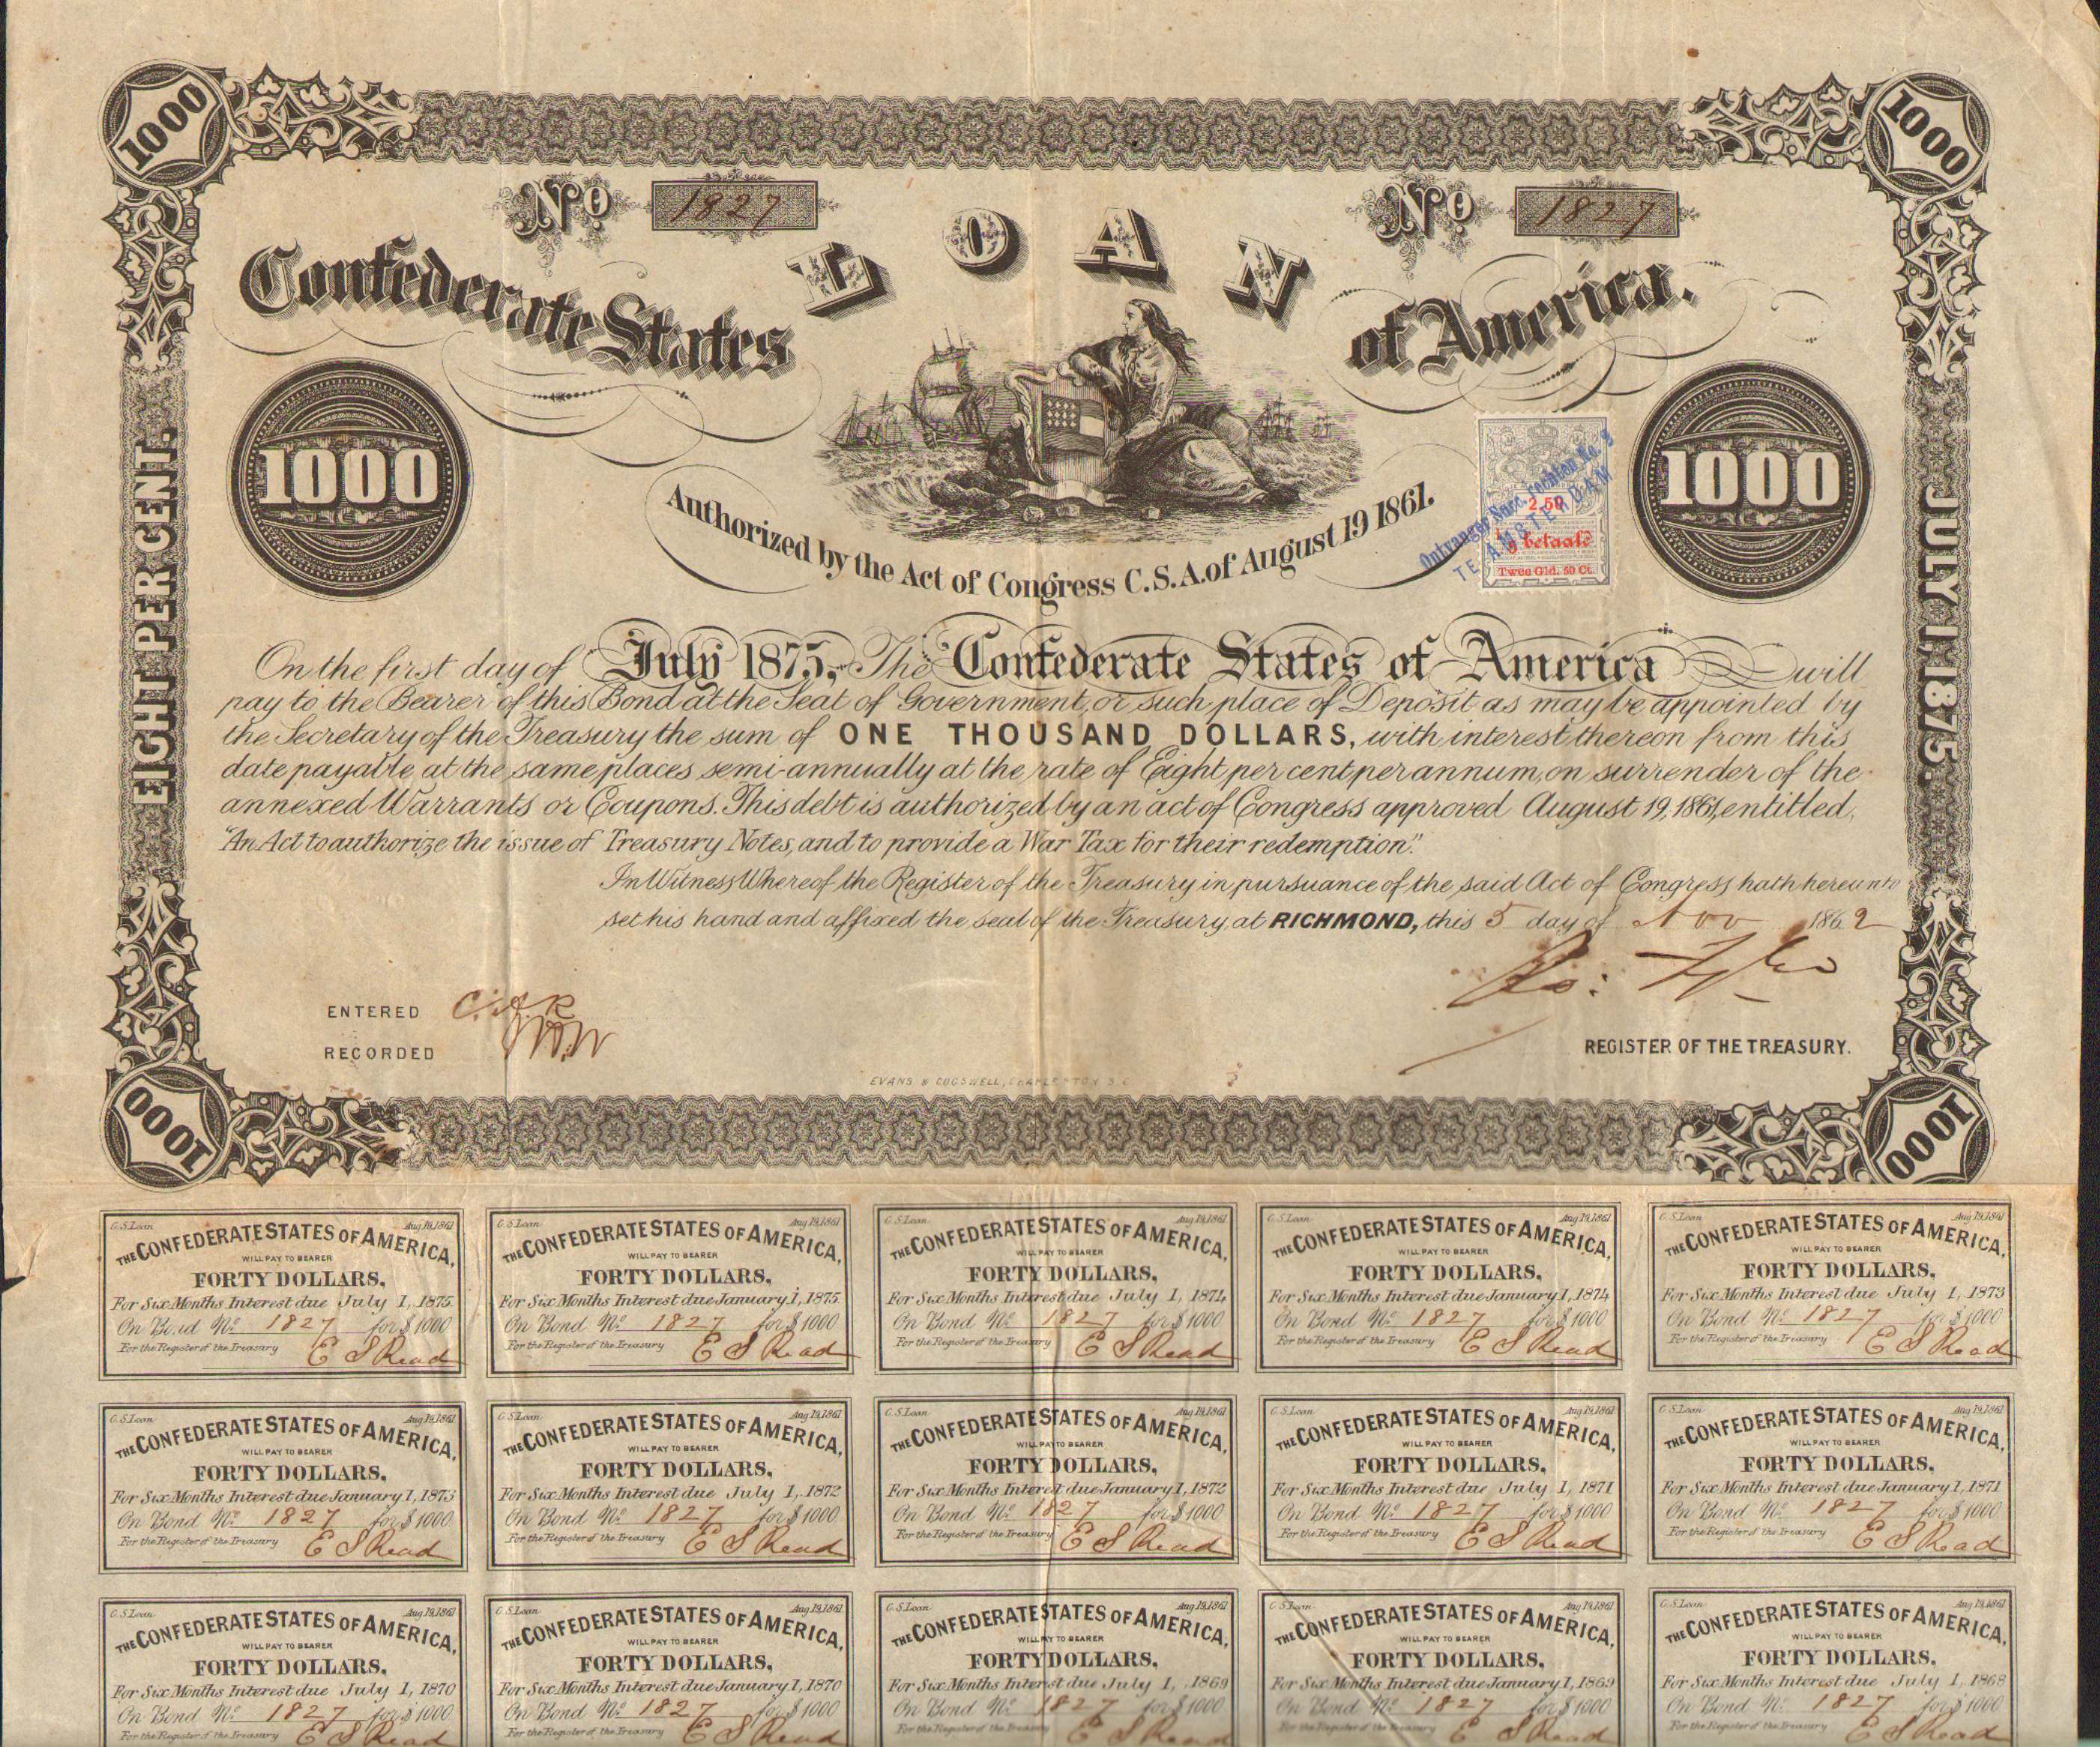 1000
1000
No 1827
No 1827
LOAN
Confederate States
of America.
1000
1000
Authorized by the Act of Congress C.S.A. of August 19 1861.
Ontvanger Succ. rechten No. 3
TE AMSTERDAM
2,50
betaald
Twee Gld. 50 Ct.
EIGHT PER CENT.
JULY 1 1875.
On the first day of July 1875, The Confederate States of America will
pay to the Bearer of this Bond at the Seat of Government, or such place of Deposit as may be appointed by
the Secretary of the Treasury the sum of ONE THOUSAND DOLLARS, with interest thereon from this
date payable at the same places semi-annually at the rate of Eight per cent per annum, on surrender of the
annexed Warrants or Coupons. This debt is authorized by an act of Congress approved August 19, 1861, entitled,
"An Act to authorize the issue of Treasury Notes, and to provide a War Tax for their redemption."
In Witness Whereof the Register of the Treasury in pursuance of the said Act of Congress hath hereunto
set his hand and affixed the seal of the Treasury, at RICHMOND, this 5 day of Nov 1862
Ro: Tyler
ENTERED C.A.R
RECORDED
REGISTER OF THE TREASURY.
EVANS & COGSWELL, CHARLESTON S.C.
1000
1000
C.S. Loan Aug 19, 1861
THE CONFEDERATE STATES OF AMERICA,
WILL PAY TO BEARER
FORTY DOLLARS,
For Six Months Interest due July 1, 1875
On Bond No 1827 for $1000
For the Register of the Treasury E S Read
C.S. Loan Aug 19, 1861
THE CONFEDERATE STATES OF AMERICA,
WILL PAY TO BEARER
FORTY DOLLARS,
For Six Months Interest due January 1, 1875
On Bond No 1827 for $1000
For the Register of the Treasury E S Read
C.S. Loan Aug 19, 1861
THE CONFEDERATE STATES OF AMERICA,
WILL PAY TO BEARER
FORTY DOLLARS,
For Six Months Interest due July 1, 1874
On Bond No 1827 for $1000
For the Register of the Treasury E S Read
C.S. Loan Aug 19, 1861
THE CONFEDERATE STATES OF AMERICA,
WILL PAY TO BEARER
FORTY DOLLARS,
For Six Months Interest due January 1, 1874
On Bond No 1827 for $1000
For the Register of the Treasury E S Read
C.S. Loan Aug 19, 1861
THE CONFEDERATE STATES OF AMERICA,
WILL PAY TO BEARER
FORTY DOLLARS,
For Six Months Interest due July 1, 1873
On Bond No 1827 for $1000
For the Register of the Treasury E S Read
C.S. Loan Aug 19, 1861
THE CONFEDERATE STATES OF AMERICA,
WILL PAY TO BEARER
FORTY DOLLARS,
For Six Months Interest due January 1, 1873
On Bond No 1827 for $1000
For the Register of the Treasury E S Read
C.S. Loan Aug 19, 1861
THE CONFEDERATE STATES OF AMERICA,
WILL PAY TO BEARER
FORTY DOLLARS,
For Six Months Interest due July 1, 1872
On Bond No 1827 for $1000
For the Register of the Treasury E S Read
C.S. Loan Aug 19, 1861
THE CONFEDERATE STATES OF AMERICA,
WILL PAY TO BEARER
FORTY DOLLARS,
For Six Months Interest due January 1, 1872
On Bond No 1827 for $1000
For the Register of the Treasury E S Read
C.S. Loan Aug 19, 1861
THE CONFEDERATE STATES OF AMERICA,
WILL PAY TO BEARER
FORTY DOLLARS,
For Six Months Interest due July 1, 1871
On Bond No 1827 for $1000
For the Register of the Treasury E S Read
C.S. Loan Aug 19, 1861
THE CONFEDERATE STATES OF AMERICA,
WILL PAY TO BEARER
FORTY DOLLARS,
For Six Months Interest due January 1, 1871
On Bond No 1827 for $1000
For the Register of the Treasury E S Read
C.S. Loan Aug 19, 1861
THE CONFEDERATE STATES OF AMERICA,
WILL PAY TO BEARER
FORTY DOLLARS,
For Six Months Interest due July 1, 1870
On Bond No 1827 for $1000
For the Register of the Treasury E S Read
C.S. Loan Aug 19, 1861
THE CONFEDERATE STATES OF AMERICA,
WILL PAY TO BEARER
FORTY DOLLARS,
For Six Months Interest due January 1, 1870
On Bond No 1827 for $1000
For the Register of the Treasury E S Read
C.S. Loan Aug 19, 1861
THE CONFEDERATE STATES OF AMERICA,
WILL PAY TO BEARER
FORTY DOLLARS,
For Six Months Interest due July 1, 1869
On Bond No 1827 for $1000
For the Register of the Treasury E S Read
C.S. Loan Aug 19, 1861
THE CONFEDERATE STATES OF AMERICA,
WILL PAY TO BEARER
FORTY DOLLARS,
For Six Months Interest due January 1, 1869
On Bond No 1827 for $1000
For the Register of the Treasury E S Read
C.S. Loan Aug 19, 1861
THE CONFEDERATE STATES OF AMERICA,
WILL PAY TO BEARER
FORTY DOLLARS,
For Six Months Interest due July 1, 1868
On Bond No 1827 for $1000
For the Register of the Treasury E S Read